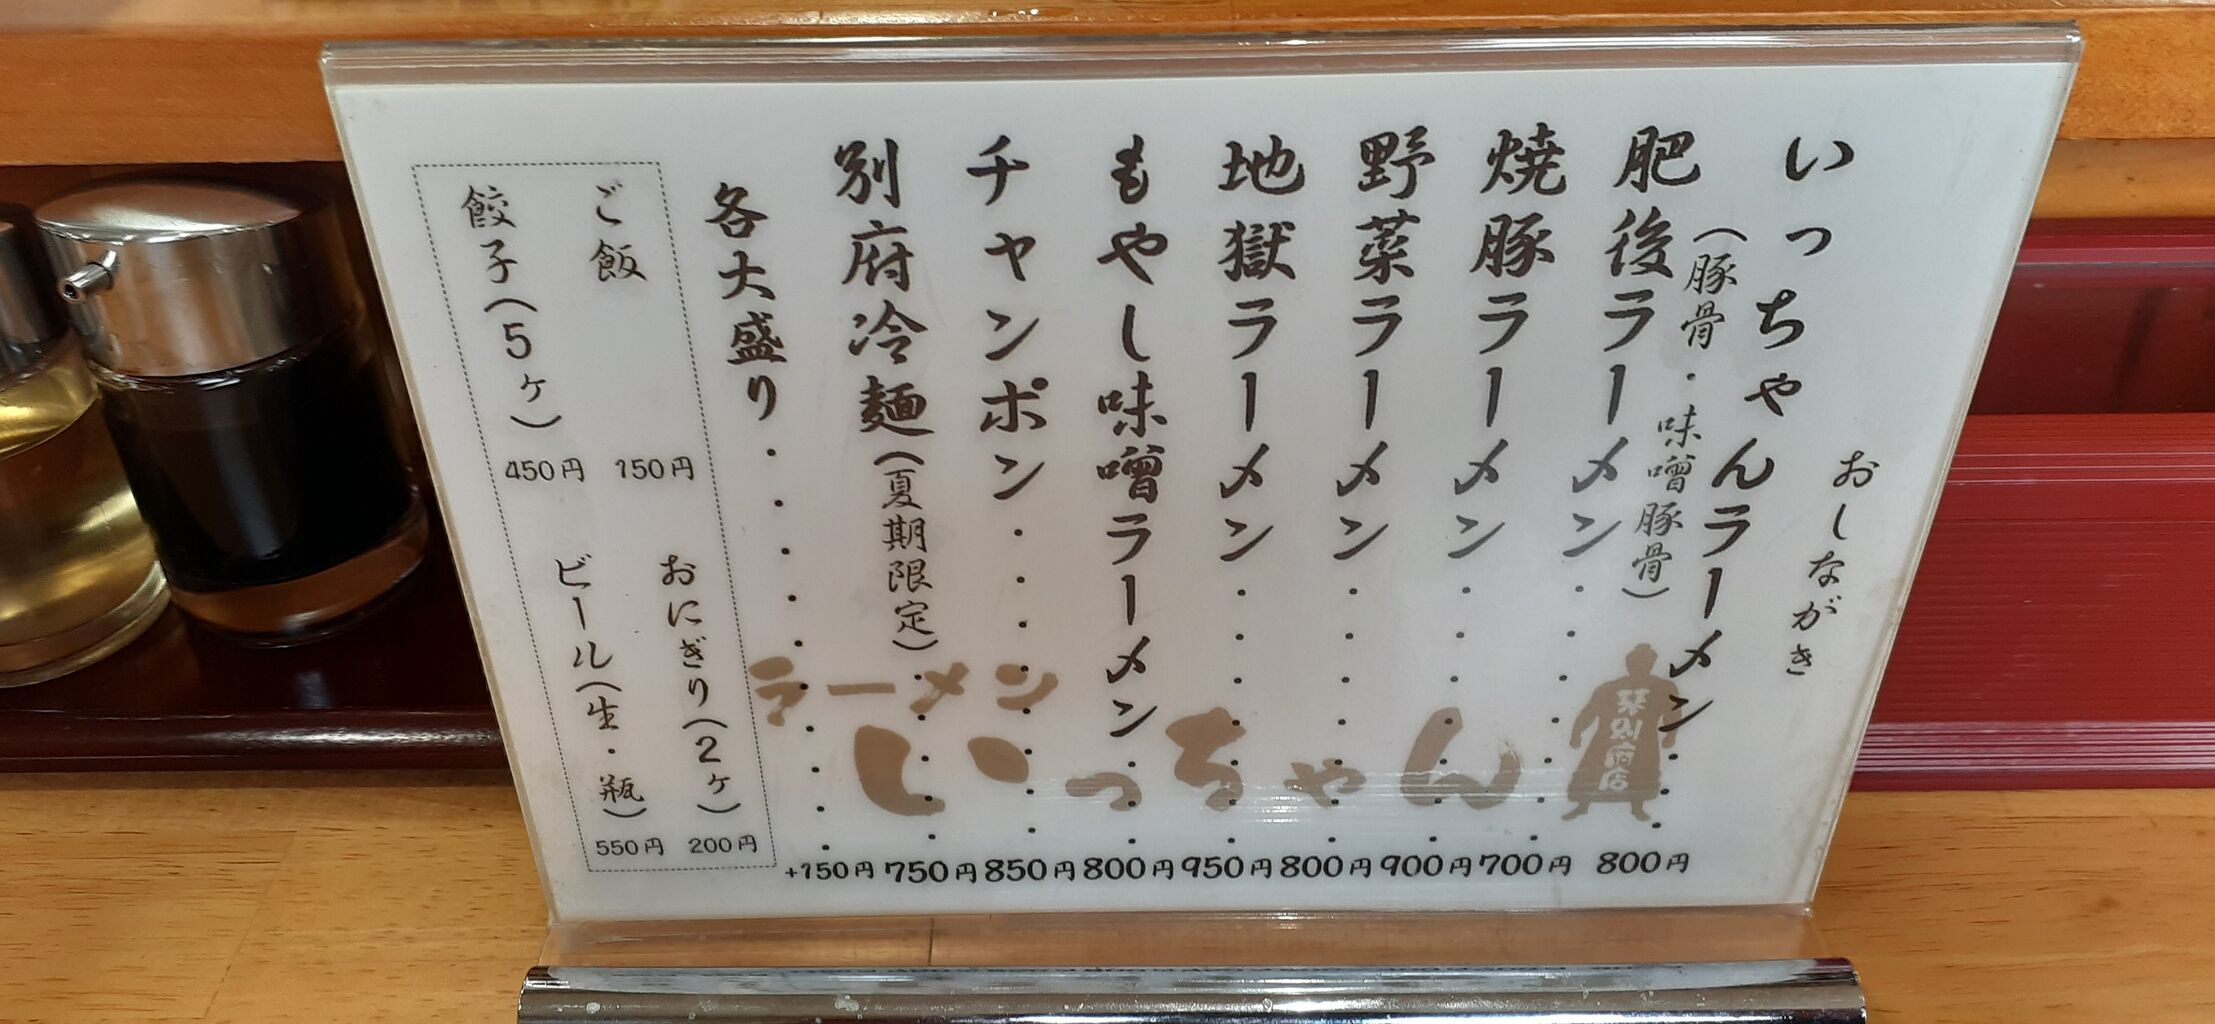 おしながき
いっちゃんラーメン・・・800円
(豚骨・味噌豚骨)
肥後ラーメン・・・・・・・700円
焼豚ラーメン・・・・・・・900円
野菜ラーメン・・・・・・・800円
地獄ラーメン・・・・・・・950円
もやし味噌ラーメン・・・800円
チャンポン・・・・・・・・850円
別府冷麺(夏期限定)・・・・・750円
各大盛り・・・・・・・・・・+150円
ご飯 150円
おにぎり(2ヶ) 200円
餃子(5ヶ) 450円
ビール(生・瓶) 550円
ラーメン
いっちゃん